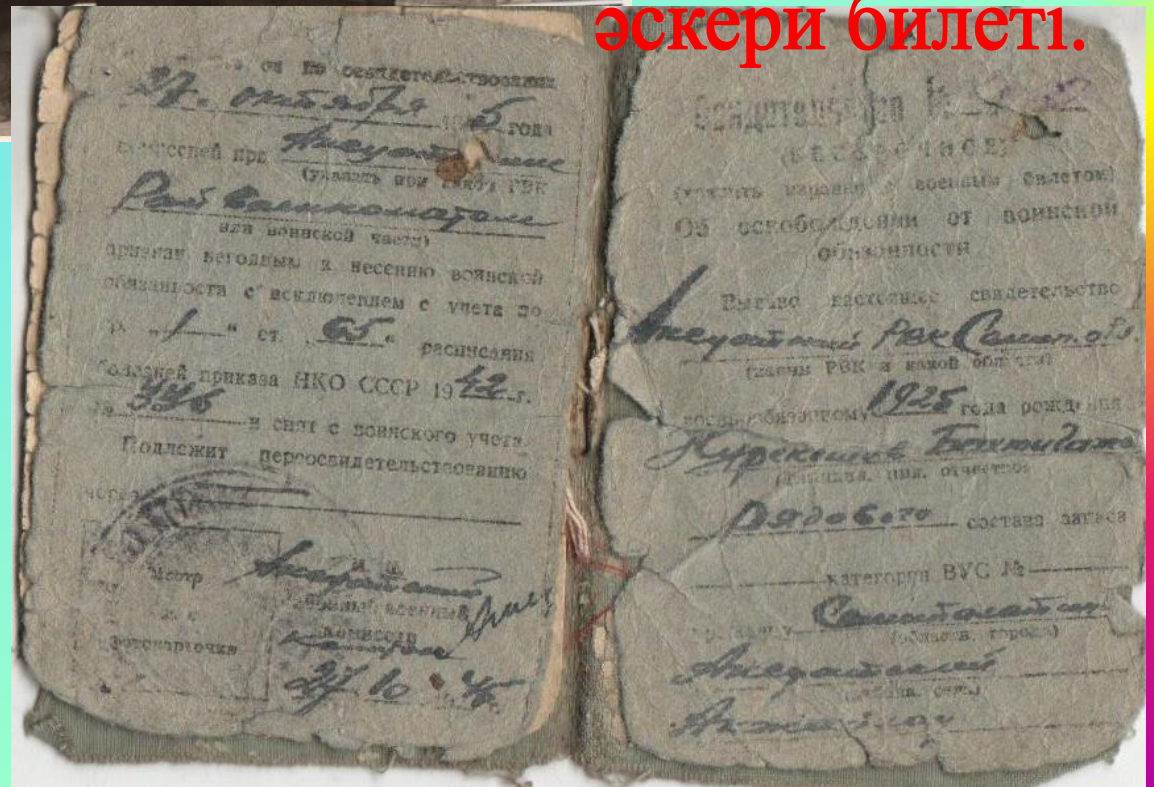 әскери билеті.
по освидетельствовании
27. октября 1945 года
комиссией при Аксуатским
(указать при каком РВК
Рай военкоматом
или воинской части)
признан негодным к несению воинской
обязанности с исключением с учета по
гр. „1“ ст. 65 „ расписания
болезней приказа НКО СССР 1942 г.
№ 336 и снят с воинского учета.
Подлежит переосвидетельствованию
через
Место Аксуатский
районный военный
комиссар
фотокарточки
27 10 45
Свидетельство №
(БЕССРОЧНОЕ)
(хранить наравне с военным билетом)
Об освобождении от воинской
обязанности
Выдано настоящее свидетельство
Аксуатский РВК Семип. обл.
(каким РВК и какой области)
военнообязанному 1925 года рождения
(фамилия, имя, отчество)
Рядового состава запаса
категории ВУС №
Семипалатинск
(области, города)
Аксуатский
(района, села)